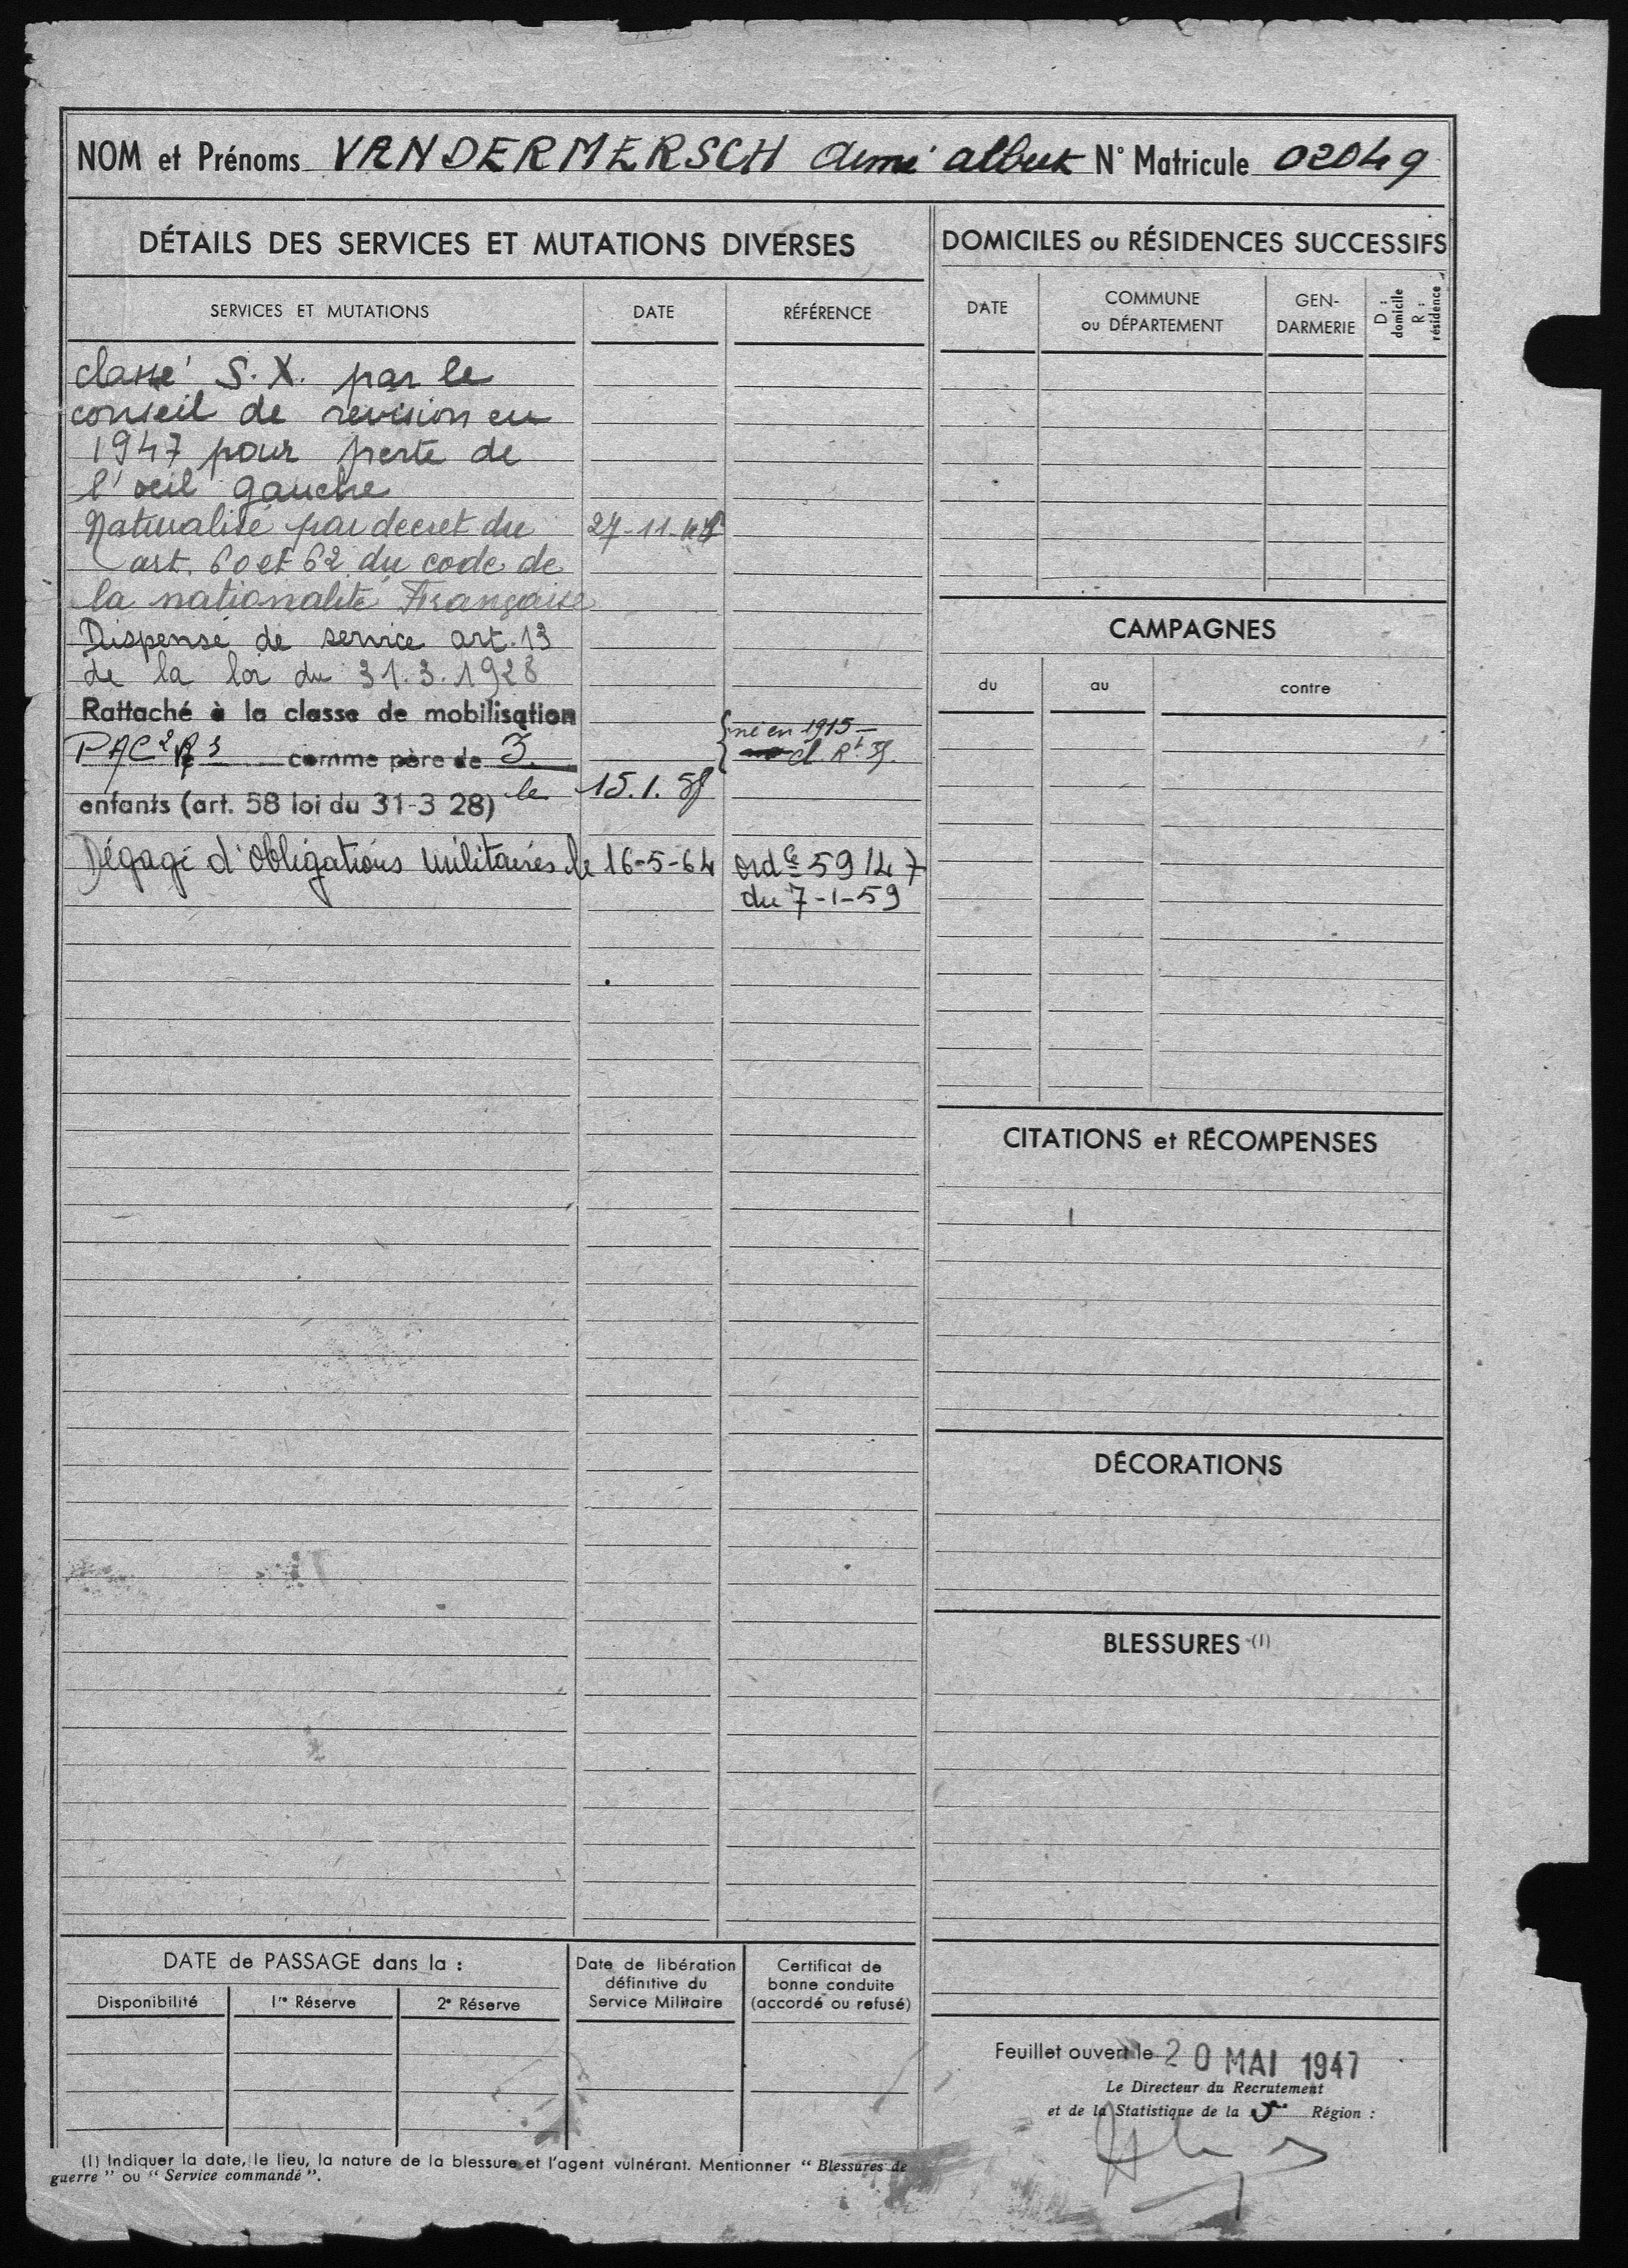 NOM et Prénoms VANDERMERSCH Aimé Albert N° Matricule 02049
DÉTAILS DES SERVICES ET MUTATIONS DIVERSES
SERVICES ET MUTATIONS DATE RÉFÉRENCE
classé S.X. par le
conseil de revision en
1947 pour perte de
l'oeil gauche
Naturalisé par decret du 27-11-
art. 60 et 62 du code de
la nationalité Française
Dispensé de service art. 13
de la loi du 31.3.1928
Rattaché à la classe de mobilisation
né en 1915 –
PAC 2 comme père de 3
cl. Rt
enfants (art. 58 loi du 31-3 28) le 15.1.
Dégagé d'obligations militaires le 16-5-64 ordce 59/147
du 7-1-59
DATE de PASSAGE dans la :
Disponibilité 1re Réserve 2e Réserve
Date de libération
définitive du
Service Militaire
Certificat de
bonne conduite
(accordé ou refusé)
DOMICILES ou RÉSIDENCES SUCCESSIFS
DATE COMMUNE
ou DÉPARTEMENT
GEN-
DARMERIE
D :
domicile
R :
résidence
CAMPAGNES
du au contre
CITATIONS et RÉCOMPENSES
DÉCORATIONS
BLESSURES (1)
Feuillet ouvert le 20 MAI 1947
Le Directeur du Recrutement
et de la Statistique de la 5me Région :
(1) Indiquer la date, le lieu, la nature de la blessure et l'agent vulnérant. Mentionner “ Blessures de
guerre ” ou “ Service commandé ”.